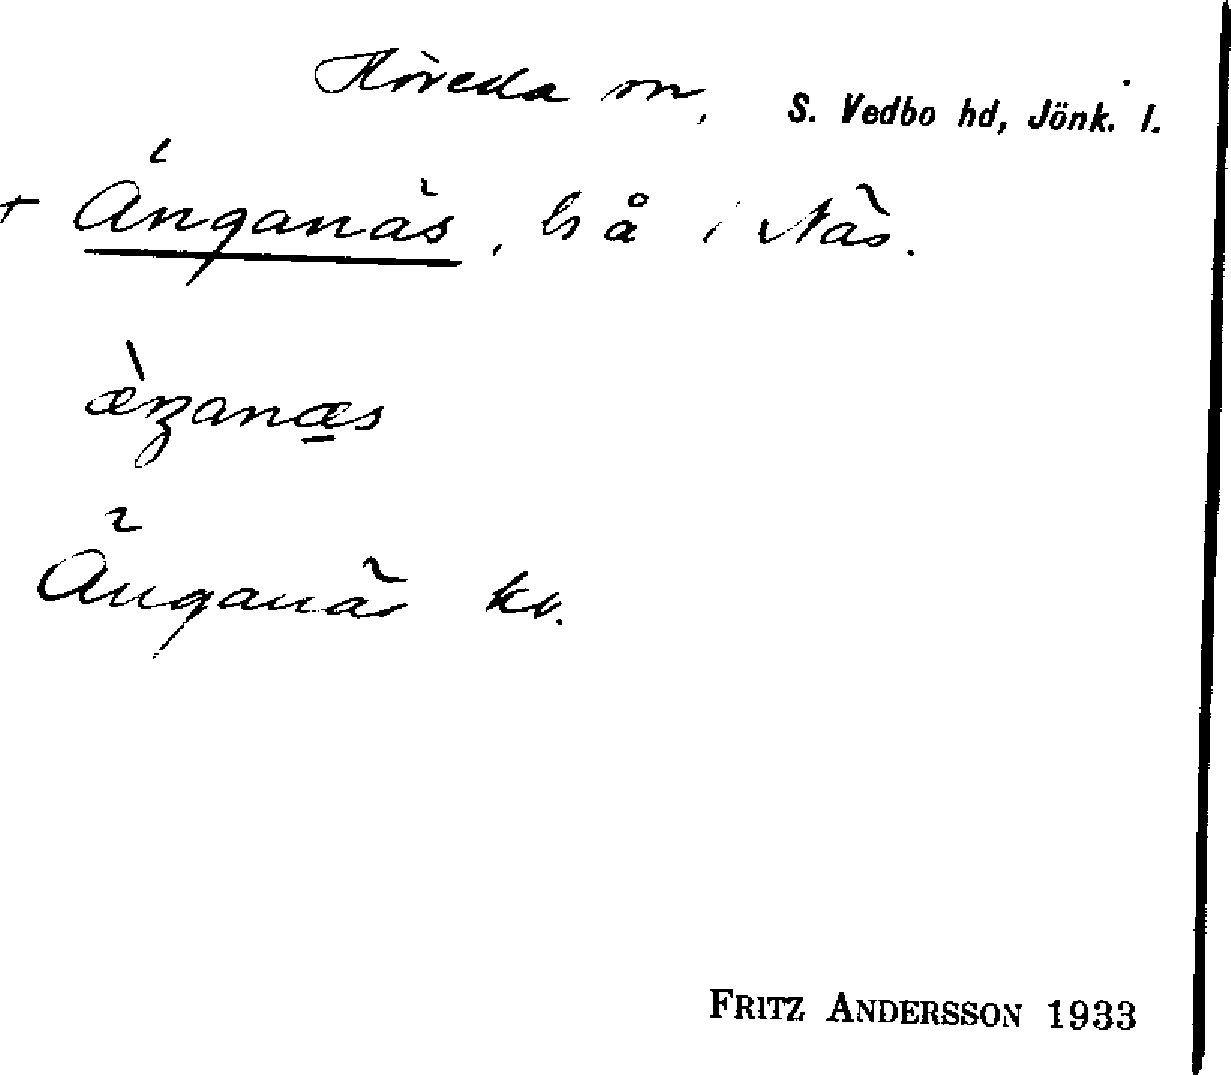 Höreda sn, S. Vedbo hd, Jönk. l.
+ Änganäs, bå i Näs.
æ̀ŋanæs
Änganäs kv.
FRITZ ANDERSSON 1933